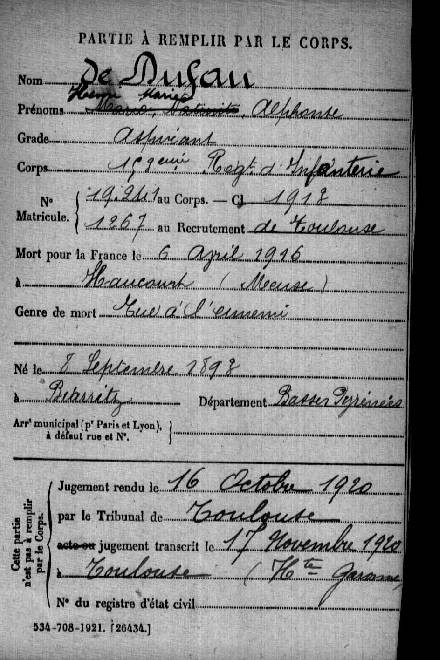 PARTIE À REMPLIR PAR LE CORPS.
Nom De Dufau
Henri Marie
Prénoms Alphonse
Grade Aspirant
Corps Regt d'Infanterie
No Matricule. 19.241 au Corps. — Cl. 1918
1267 au Recrutement de Toulouse
Mort pour la France le 6 April 1916
à Haucourt (Meuse)
Genre de mort Tué à l'ennemi
Né le 8 Septembre 1898
à Biarritz Département Basses Pyrénées
Arrt municipal (pr Paris et Lyon), à défaut rue et No.
Cette partie n'est pas à remplir par le Corps.
Jugement rendu le 16 Octobre 1920
par le Tribunal de Toulouse
acte ou jugement transcrit le 17 Novembre 1920
à Toulouse (Hte Garonne)
No du registre d'état civil
534-708-1921. [26434.]